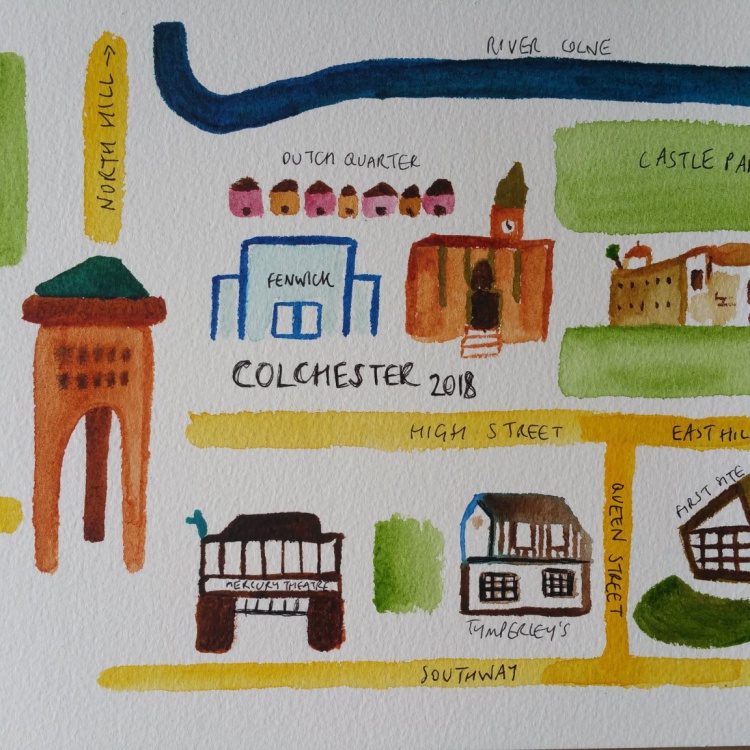 RIVER COLNE
NORTH HILL →
DUTCH QUARTER
CASTLE PA
FENWICK
COLCHESTER 2018
HIGH STREET
EAST HIL
QUEEN STREET
FIRST SITE
MERCURY THEATRE
TYMPERLEY'S
SOUTHWAY